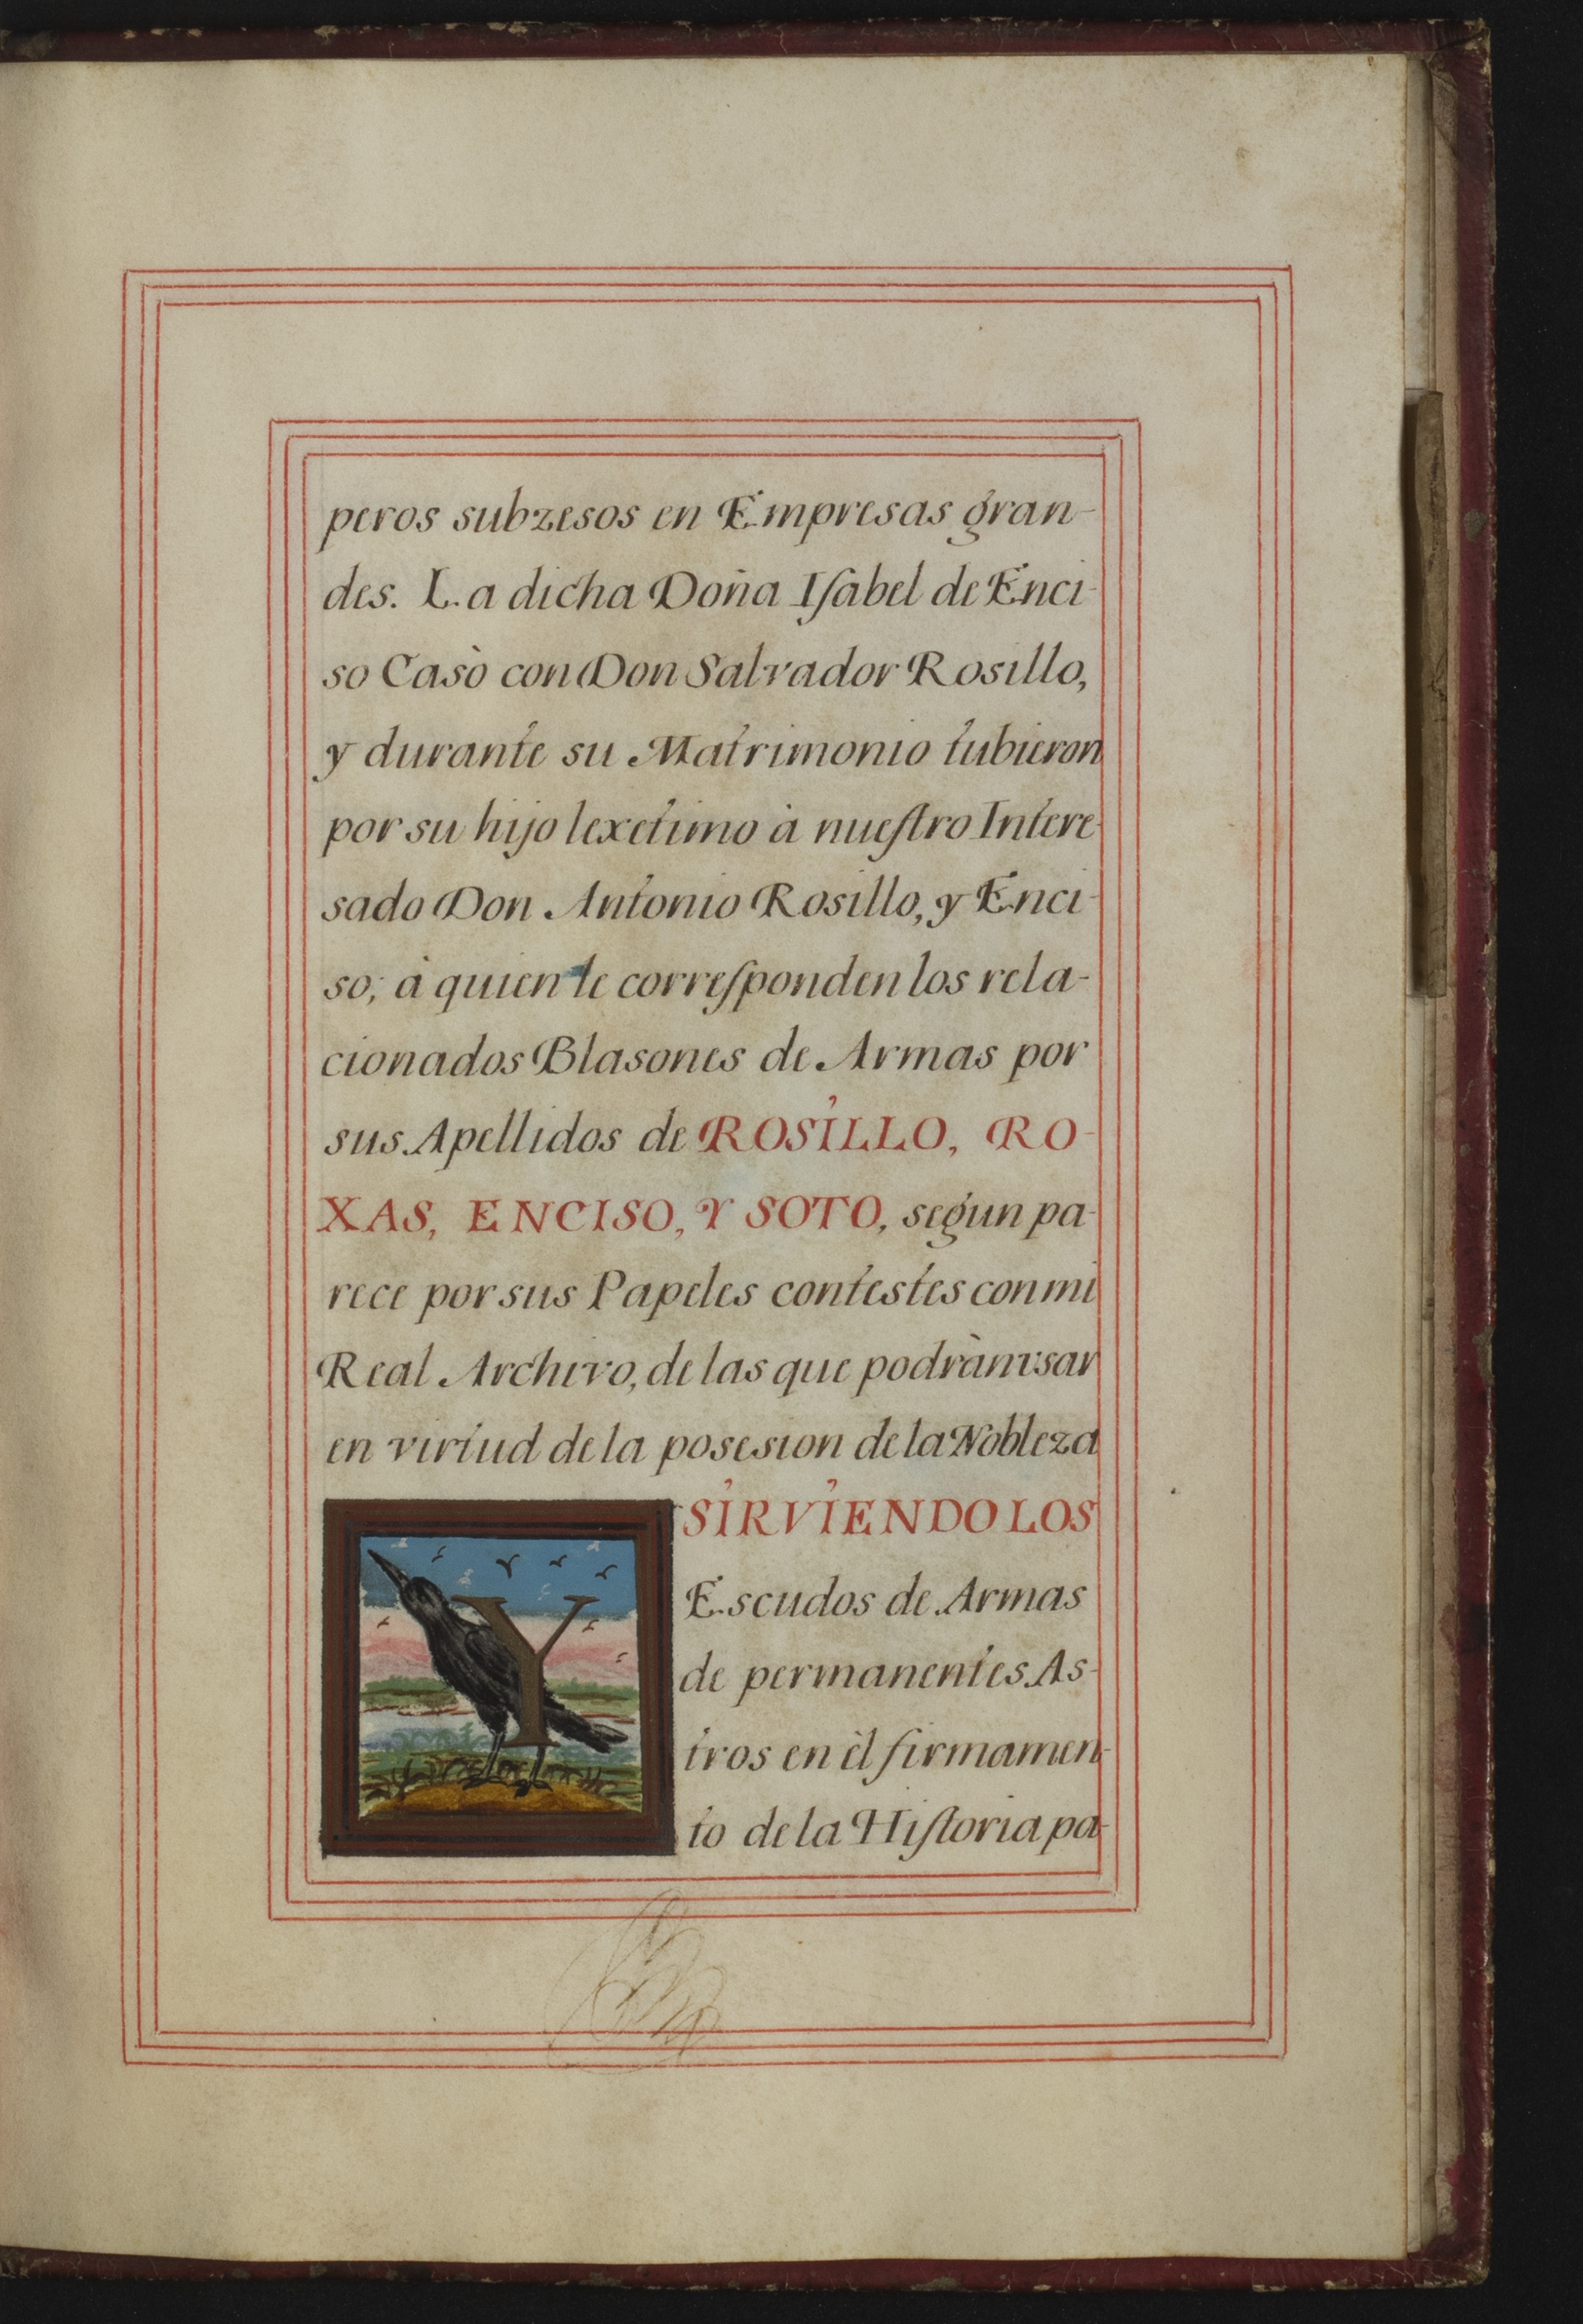 peros subzesos en Empresas gran-
des. La dicha Doña Iſabel de Enci-
so Casò con Don Salvador Rosillo,
y durante su Matrimonio tubieron
por su hijo lexetimo à nueſtro Intere-
sado Don Antonio Rosillo, y Enci-
so; à quien le correſponden los rela-
cionados Blasones de Armas por
sus Apellidos de ROSILLO, RO-
XAS, ENCISO, Y SOTO, segun pa-
rece por sus Papeles contestes con mi
Real Archivo, de las que podràn vsar
en virtud de la posesion de la Nobleza
Y SIRVIENDO LOS
Escudos de Armas
de permanentes As-
tros en èl firmamen-
to de la Hiſtoria pa-